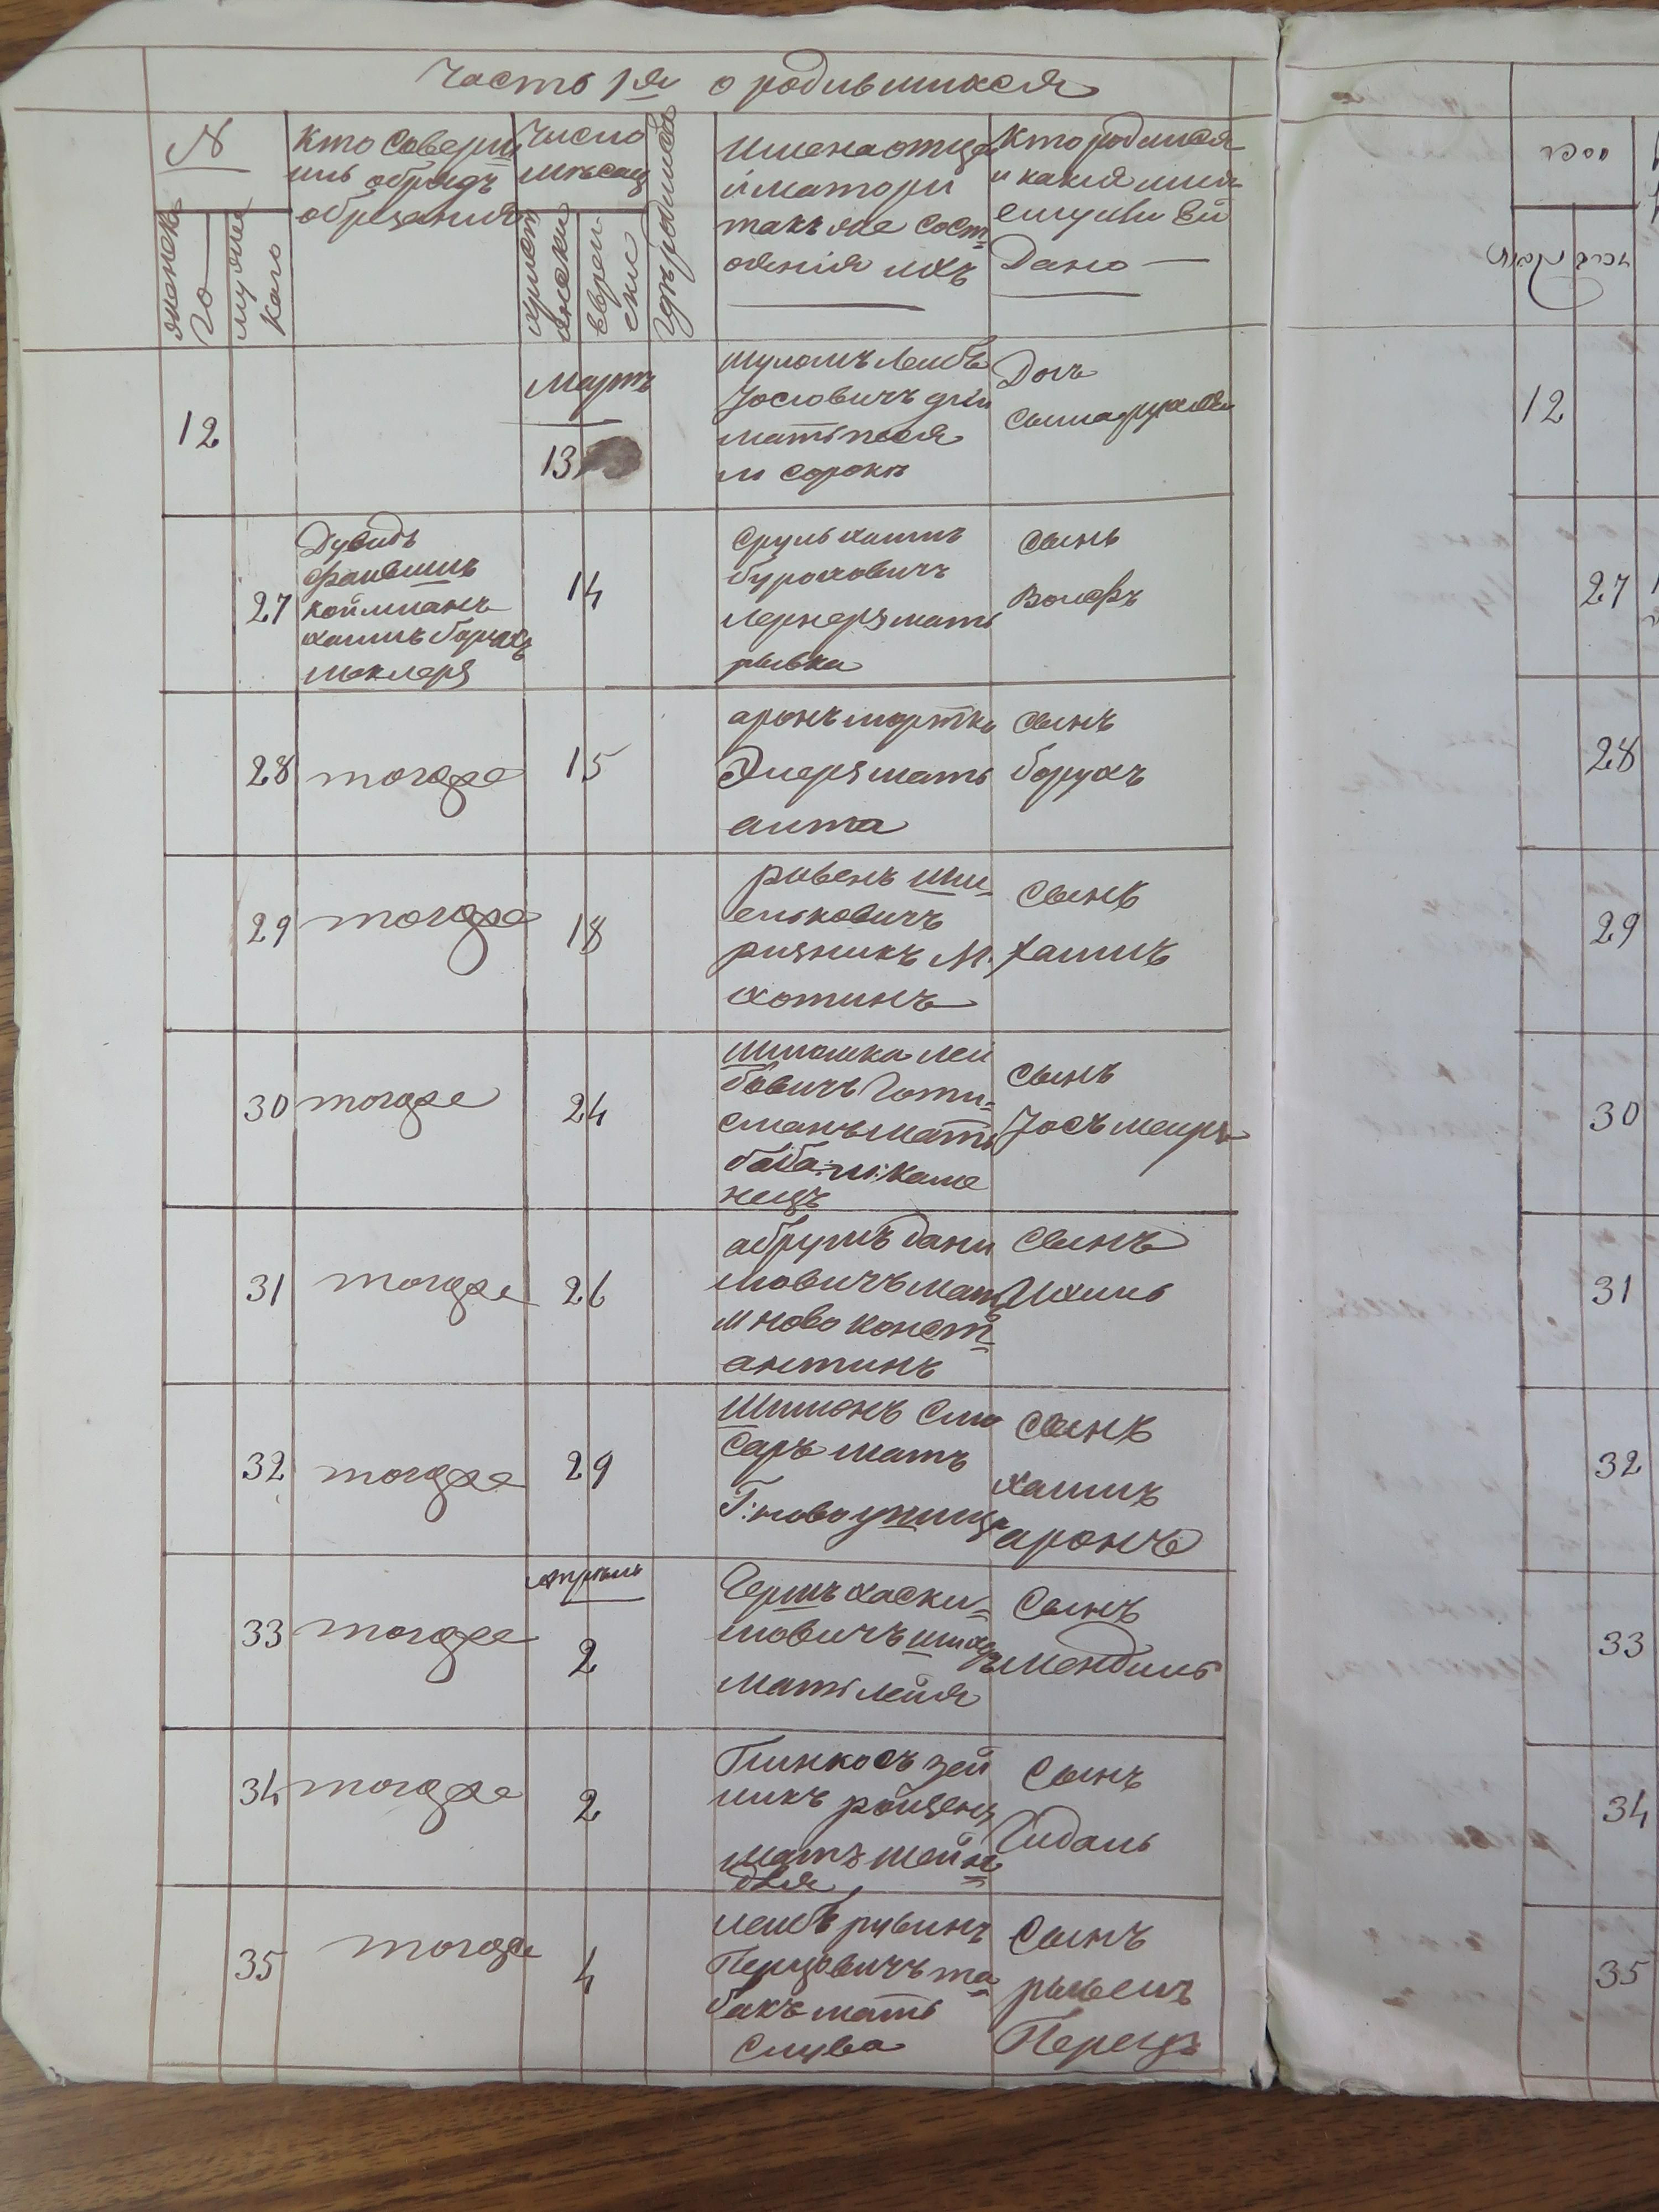 Часть 1я о родившихся
№
женска
го
мужес
каго
Кто соверш
илъ обрядъ
обрезания
Число
мѣсяц
христ
иански
еврей
ские
где родился
Имена отца
и матери
такъ же сост
ояния ихъ
Кто родился
и какия имя
ему или ей
Дано
12
Мартъ
13
шуломъ Леибъ
Іосіовичъ
мать песя
м сороки
Дочь
27
Дувидъ
Фаивишъ
койлманъ
хаимъ борухъ
маклеръ
14
сруль хаимъ
бурохович
лернеръ мать
рывка
сынъ
Волефъ
28
тогоже
15
аронъ мортко
мать
аита
сынъ
борухъ
29
тогоже
18
рувенъ шми
ельковичъ
ризникъ м.
хотинъ
сынъ
хаимъ
30
тогоже
24
шлиомка леи
бовичъ Готи
сманъ мать
баба: м: каме
нецъ
сынъ
Іосъ меиръ
31
тогоже
26
абрумъ дани
ловичъ мать
м ново конст
антинъ
сынъ
Ихиль
32
тогоже
29
Шимонъ слю
саръ мать
Г: ново ушица
сынъ
хаимъ
аронъ
33
тогоже
апрѣль
2
Гершъ хаски
ловичъ
мать лейя
сынъ
мендиль
34
тогоже
2
Пинкосъ зей
ликъ
мать шейн
для
сынъ
Гидаль
35
тогоже
4
леибъ рувинъ
Перцовичъ та
бакъ мать
слува
сынъ
Перецъ
12
27
28
29
30
31
32
33
34
35